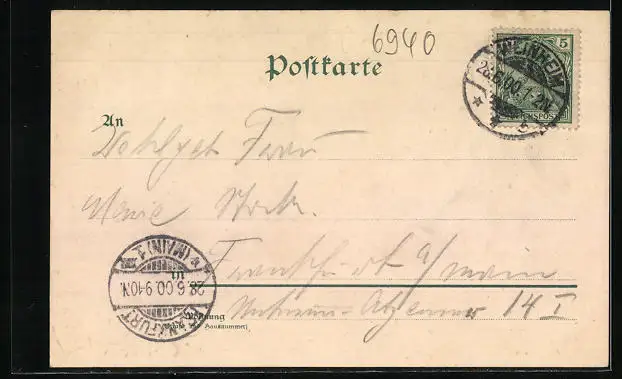 6940
Postkarte
5
REICHSPOST
WEINHEIM
28.6.00.1-2N.
An
Wohlgeb Frau
Marie
Frankfurt a/main
in
FRANKFURT (MAIN) 1
28.6.00.9-10N.
Wohnung
14 I
(Straße und Hausnummer)